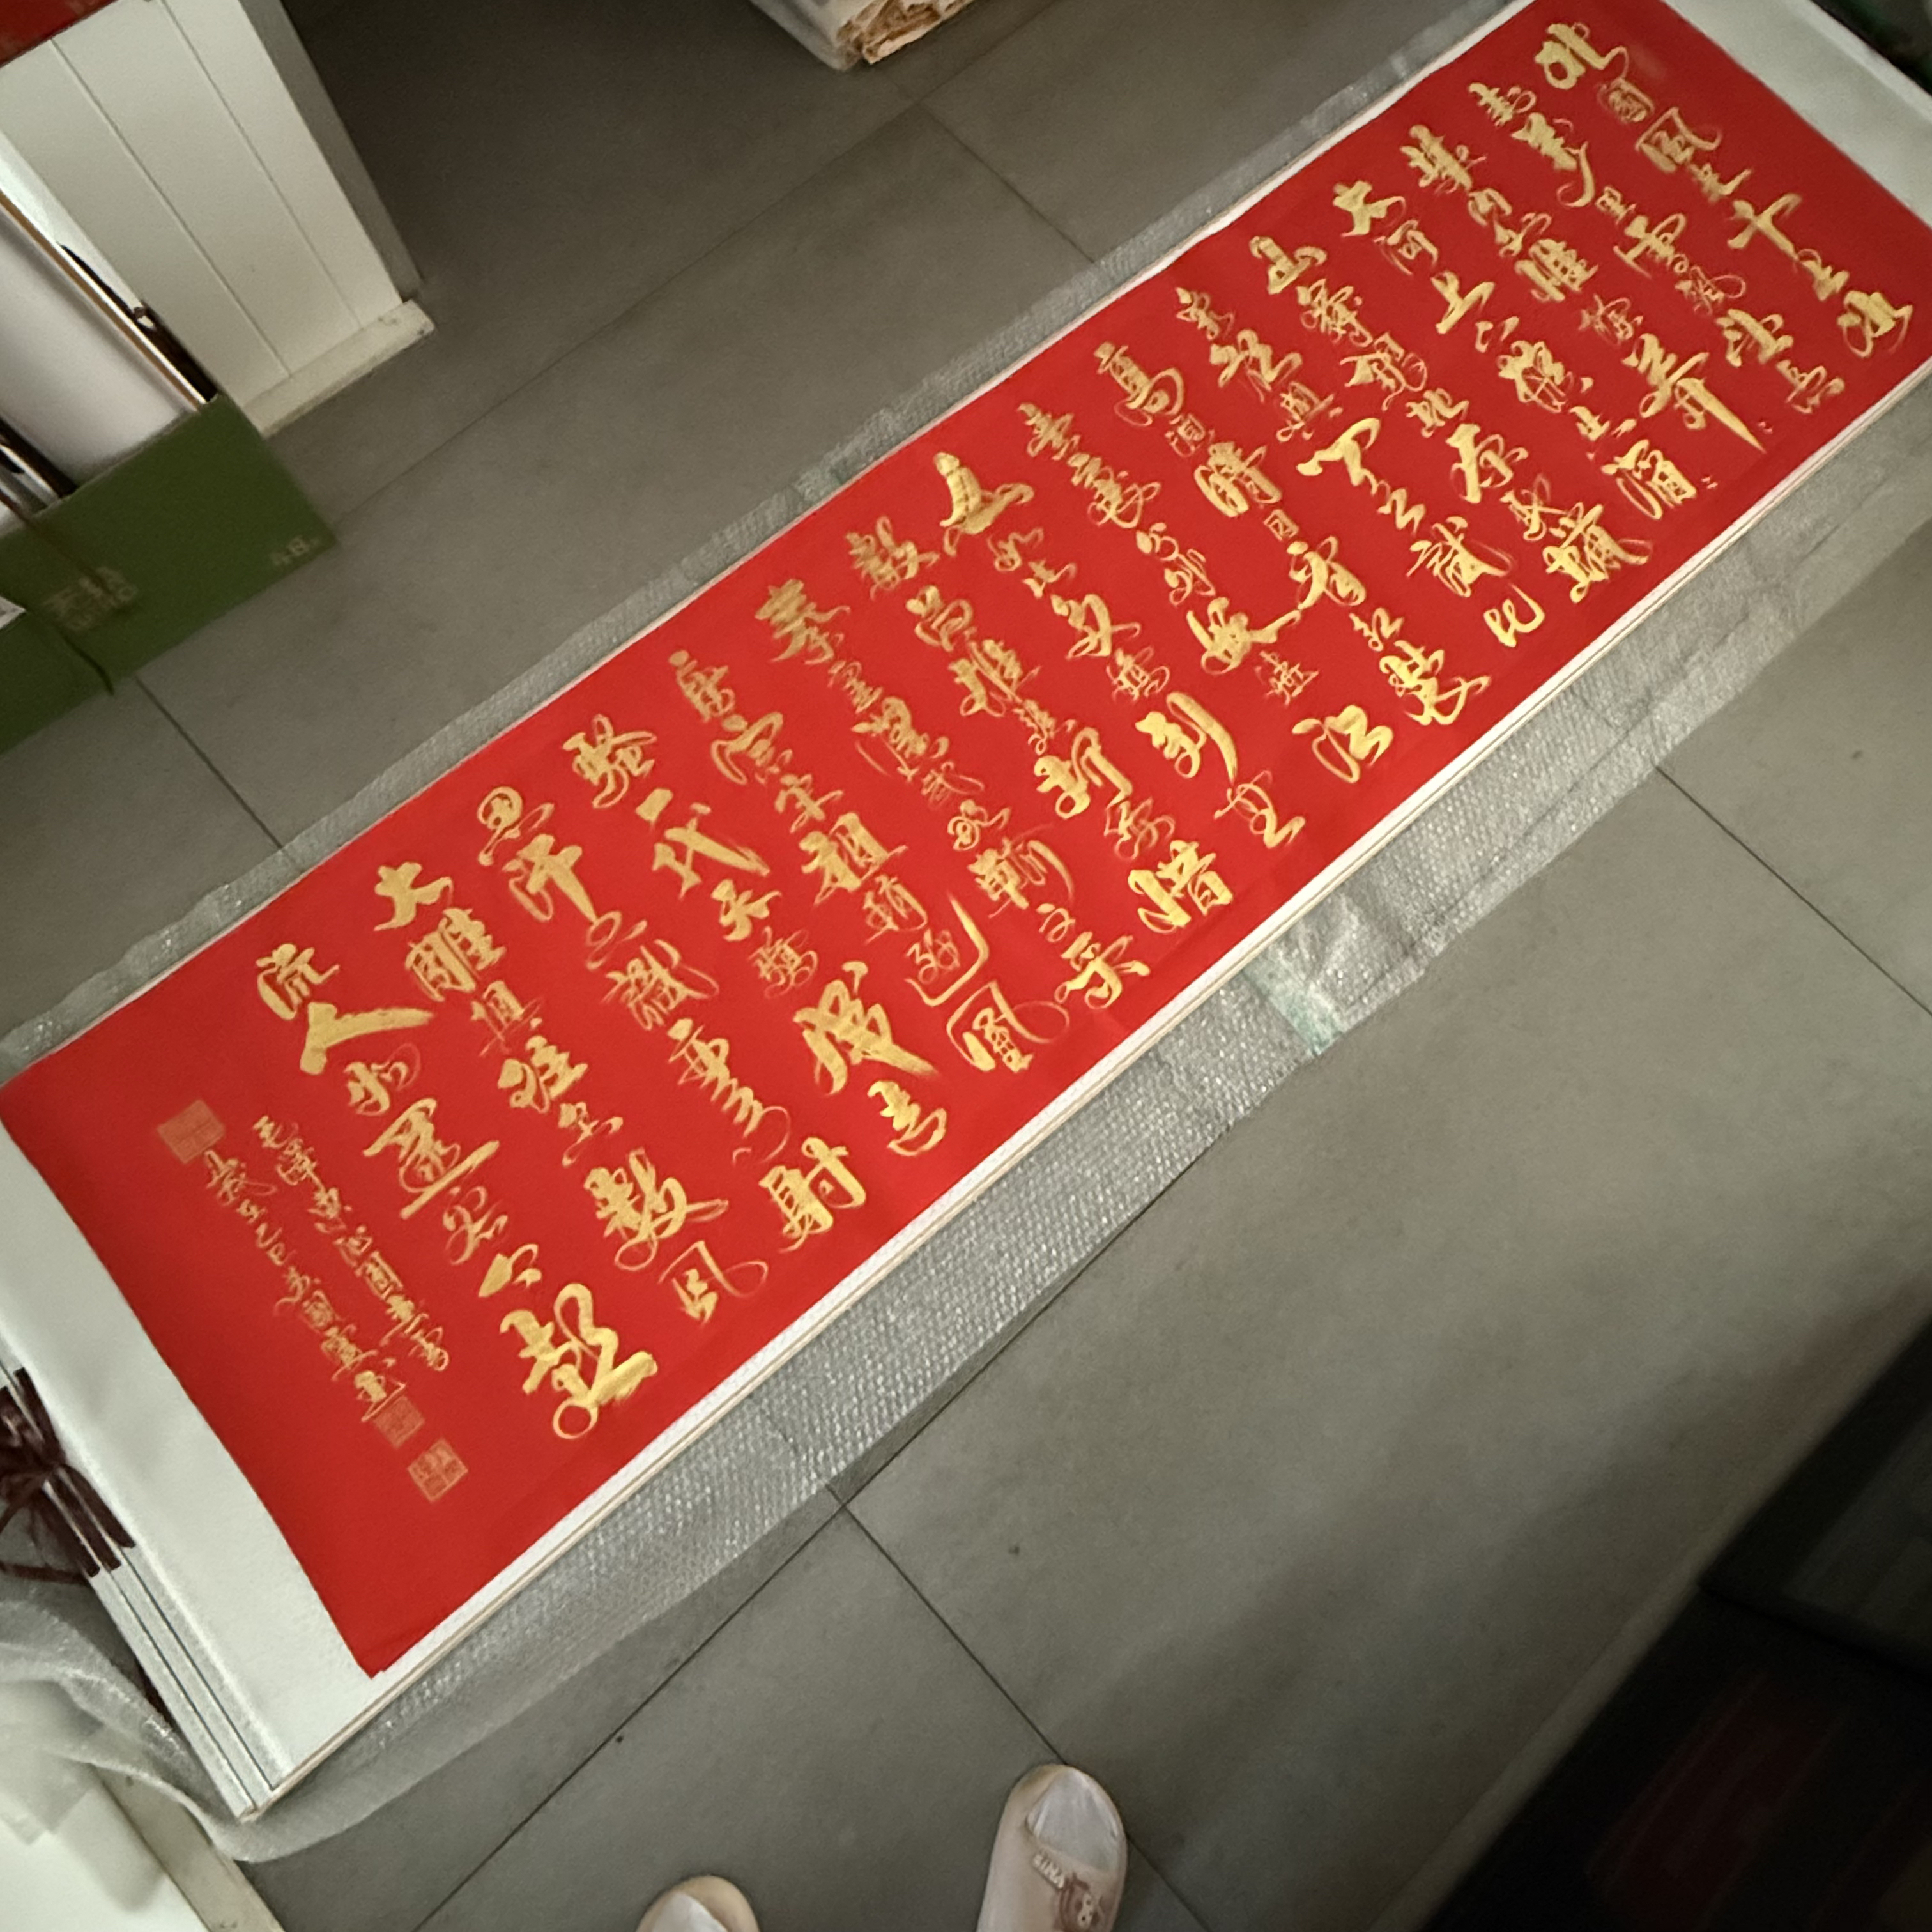 北國風光千里冰
封萬里雪飄望長
城内外惟餘莽〻
大河上下頓失滔〻
山舞銀蛇原馳蠟
象欲與天公試比
高須晴日看紅裝
素裹分外妖嬈江
山如此多嬌引無
數英雄競折腰惜
秦皇漢武略輸文采
唐宗宋祖稍遜風
騷一代天驕成吉
思汗只識彎弓射
大雕俱往矣數風
流人物還看今朝
毛澤東沁園春雪
歲在乙巳